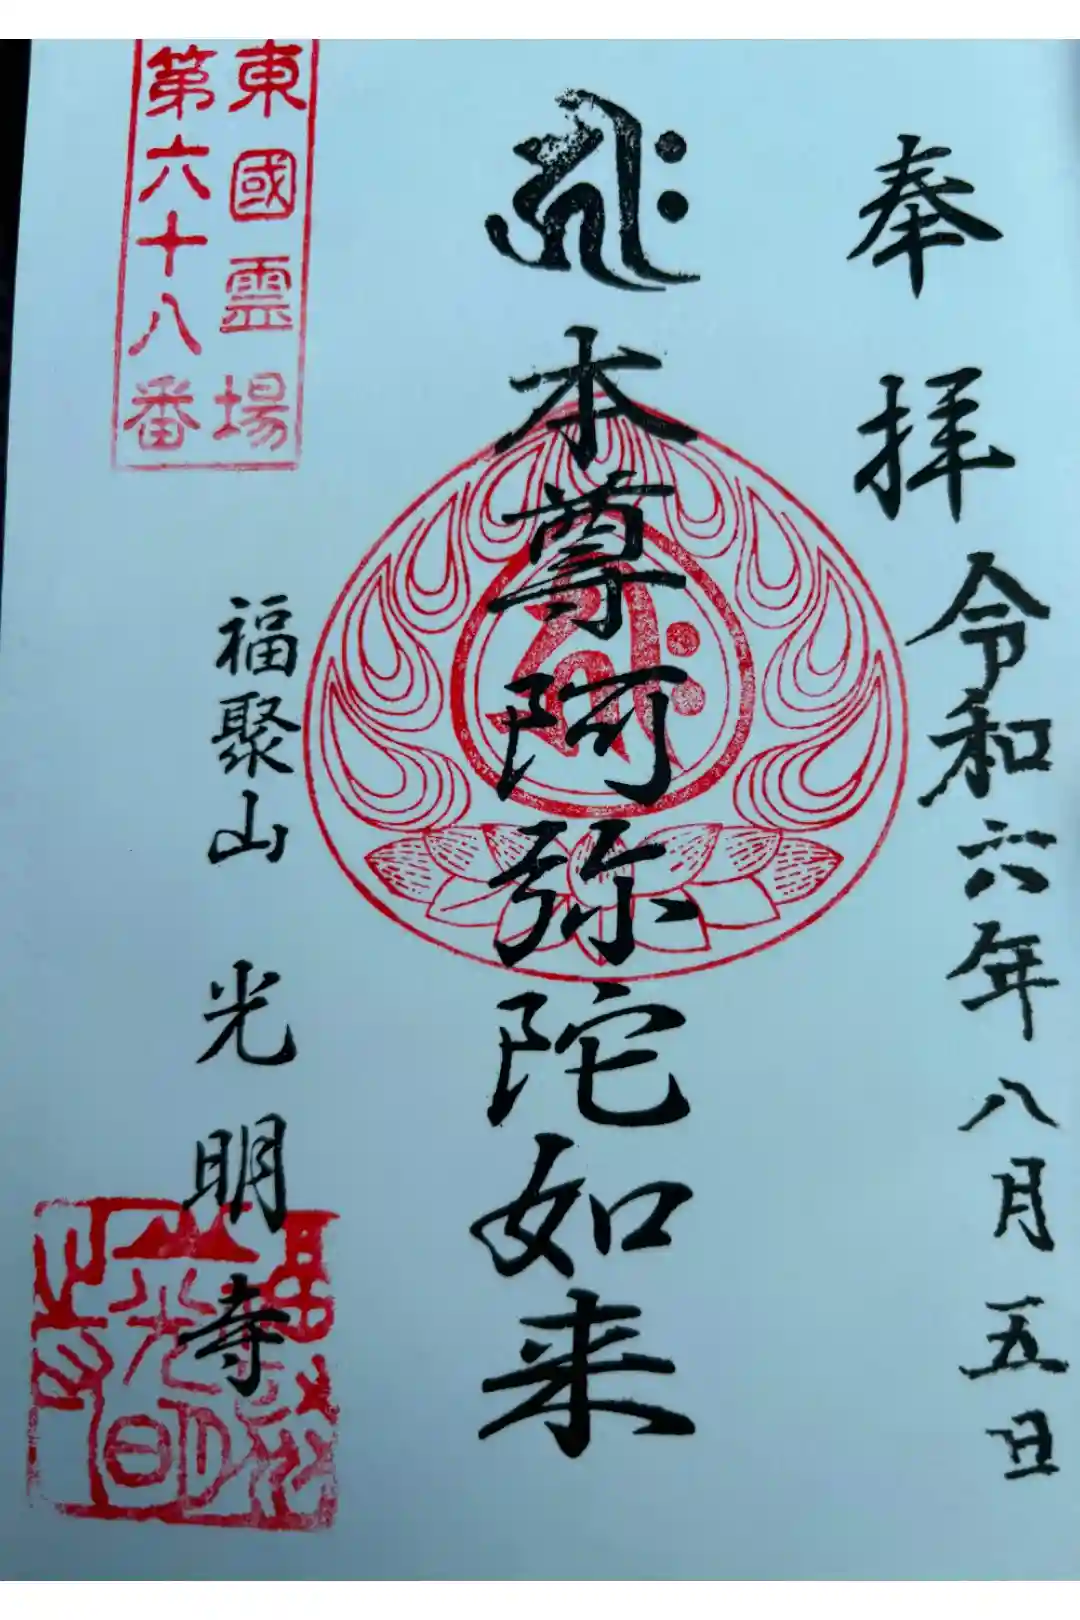 奉拝
令和六年八月五日
𑖮𑖿𑖨𑖱𑖾
本尊阿弥陀如来
𑖮𑖿𑖨𑖱𑖾
東國霊場
第六十八番
福聚山 光明寺